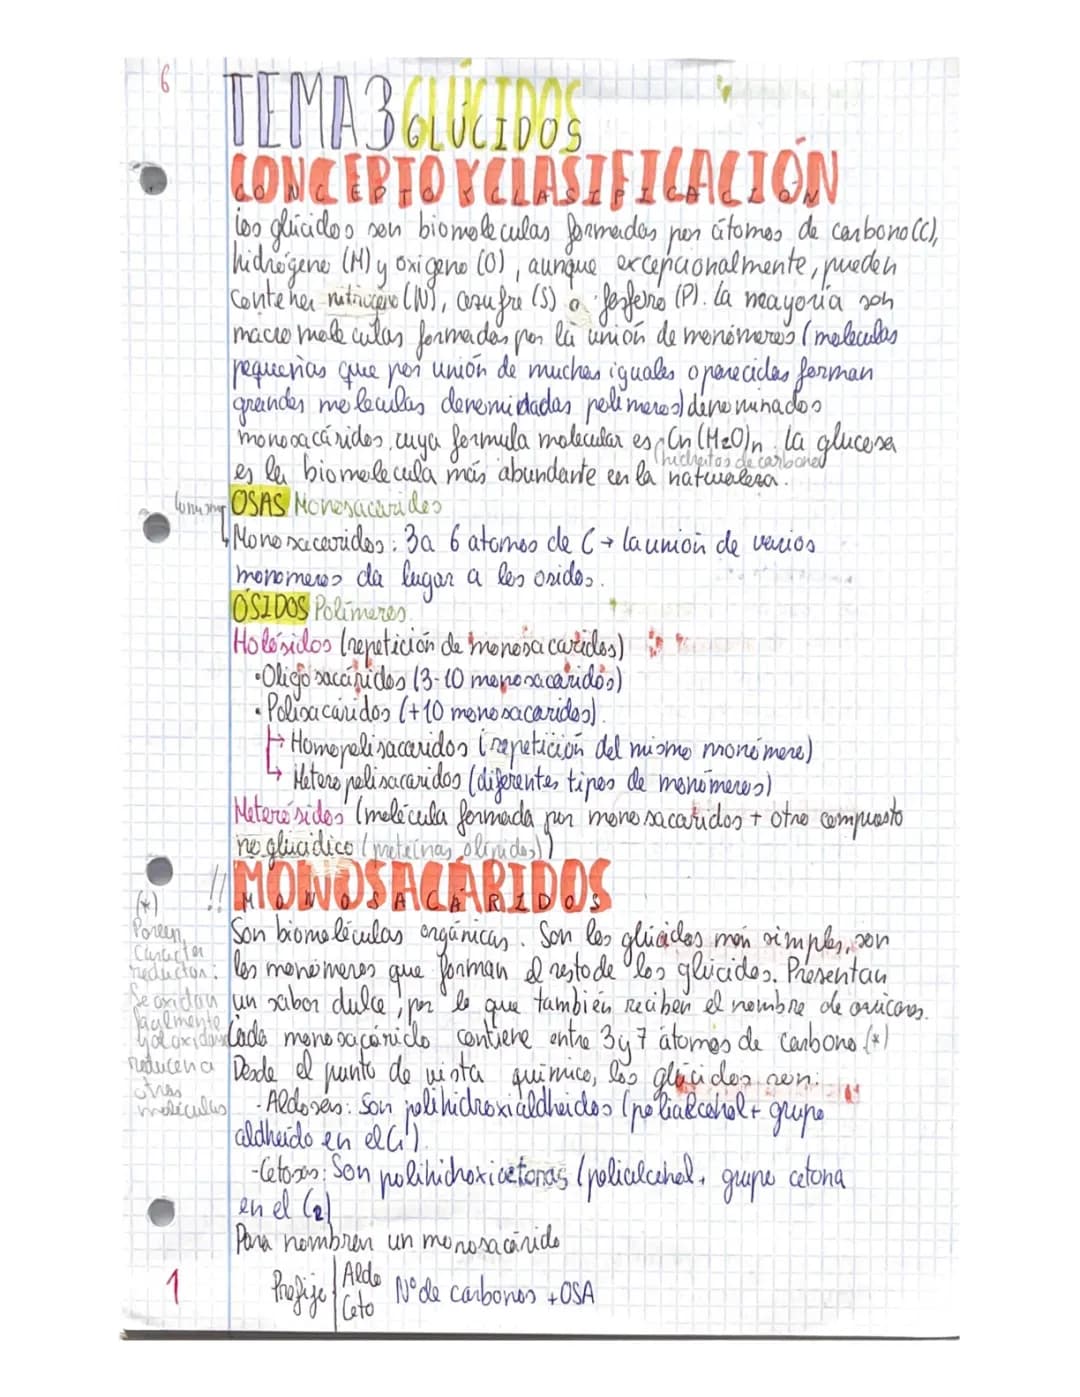 6
TEMA 3 GLÚCIDOS
CONCEPTO Y CLASIFICACIÓN
Los glúcidos son biomoleculas formadas por átomos de carbono (C),
hidrógeno (H) y oxigeno (O), aunque excepcionalmente, pueden
contener nitrógeno (N), azufre (S) o fosforo (P). La mayoría son
macromoleculas formadas por la unión de monómeros (moleculas
pequeñas que por unión de muchas iguales o parecidas forman
grandes moleculas denomidadas polimeros) denominados
monosacáridos, cuya formula molecular es Cn(H2O)n. La glucosa
(hidratos de carbono)
es la biomolecula más abundante en la naturaleza.
OSAS Monosacaridos
Monosacaridos: 3 a 6 atomos de C → la unión de varios
monomeros da lugar a los osidos.
ÓSIDOS Polímeros
Holósidos (repetición de monosacaridos)
·Oligosacáridos (3-10 monosacaridos)
·Polisacáridos (+10 monosacaridos).
→ Homopolisacaridos (repetición del mismo monómero)
→ Heteropolisacaridos (diferentes tipos de monómeros)
Heterósidos (molécula formada por monosacaridos + otro compuesto
no glucidico (proteínas o lipidos))
!! MONOSACÁRIDOS
Son biomoléculas orgánicas. Son los glúcidos más simples, son
los monómeros que forman el resto de los glúcidos. Presentan
un sabor dulce, por lo que también reciben el nombre de azúcares.
Cada monosacárido contiene entre 3 y 7 átomos de carbono. (*)
(*)
Poseen
Caracter
reductor:
Se oxidan
facilmente
y al oxidarse
reducen a
otras
moléculas
Desde el punto de vista quimico, los glúcidos son:
-Aldosas: Son polihidroxialdheidos (polialcohol + grupo
aldheido en el C1).
-Cetosas: Son polihidroxicetonas (polialcohol + grupo cetona
en el C2)
Para nombrar un monosacárido
Prefijo | Aldo
Ceto
Nº de carbonos + OSA
1